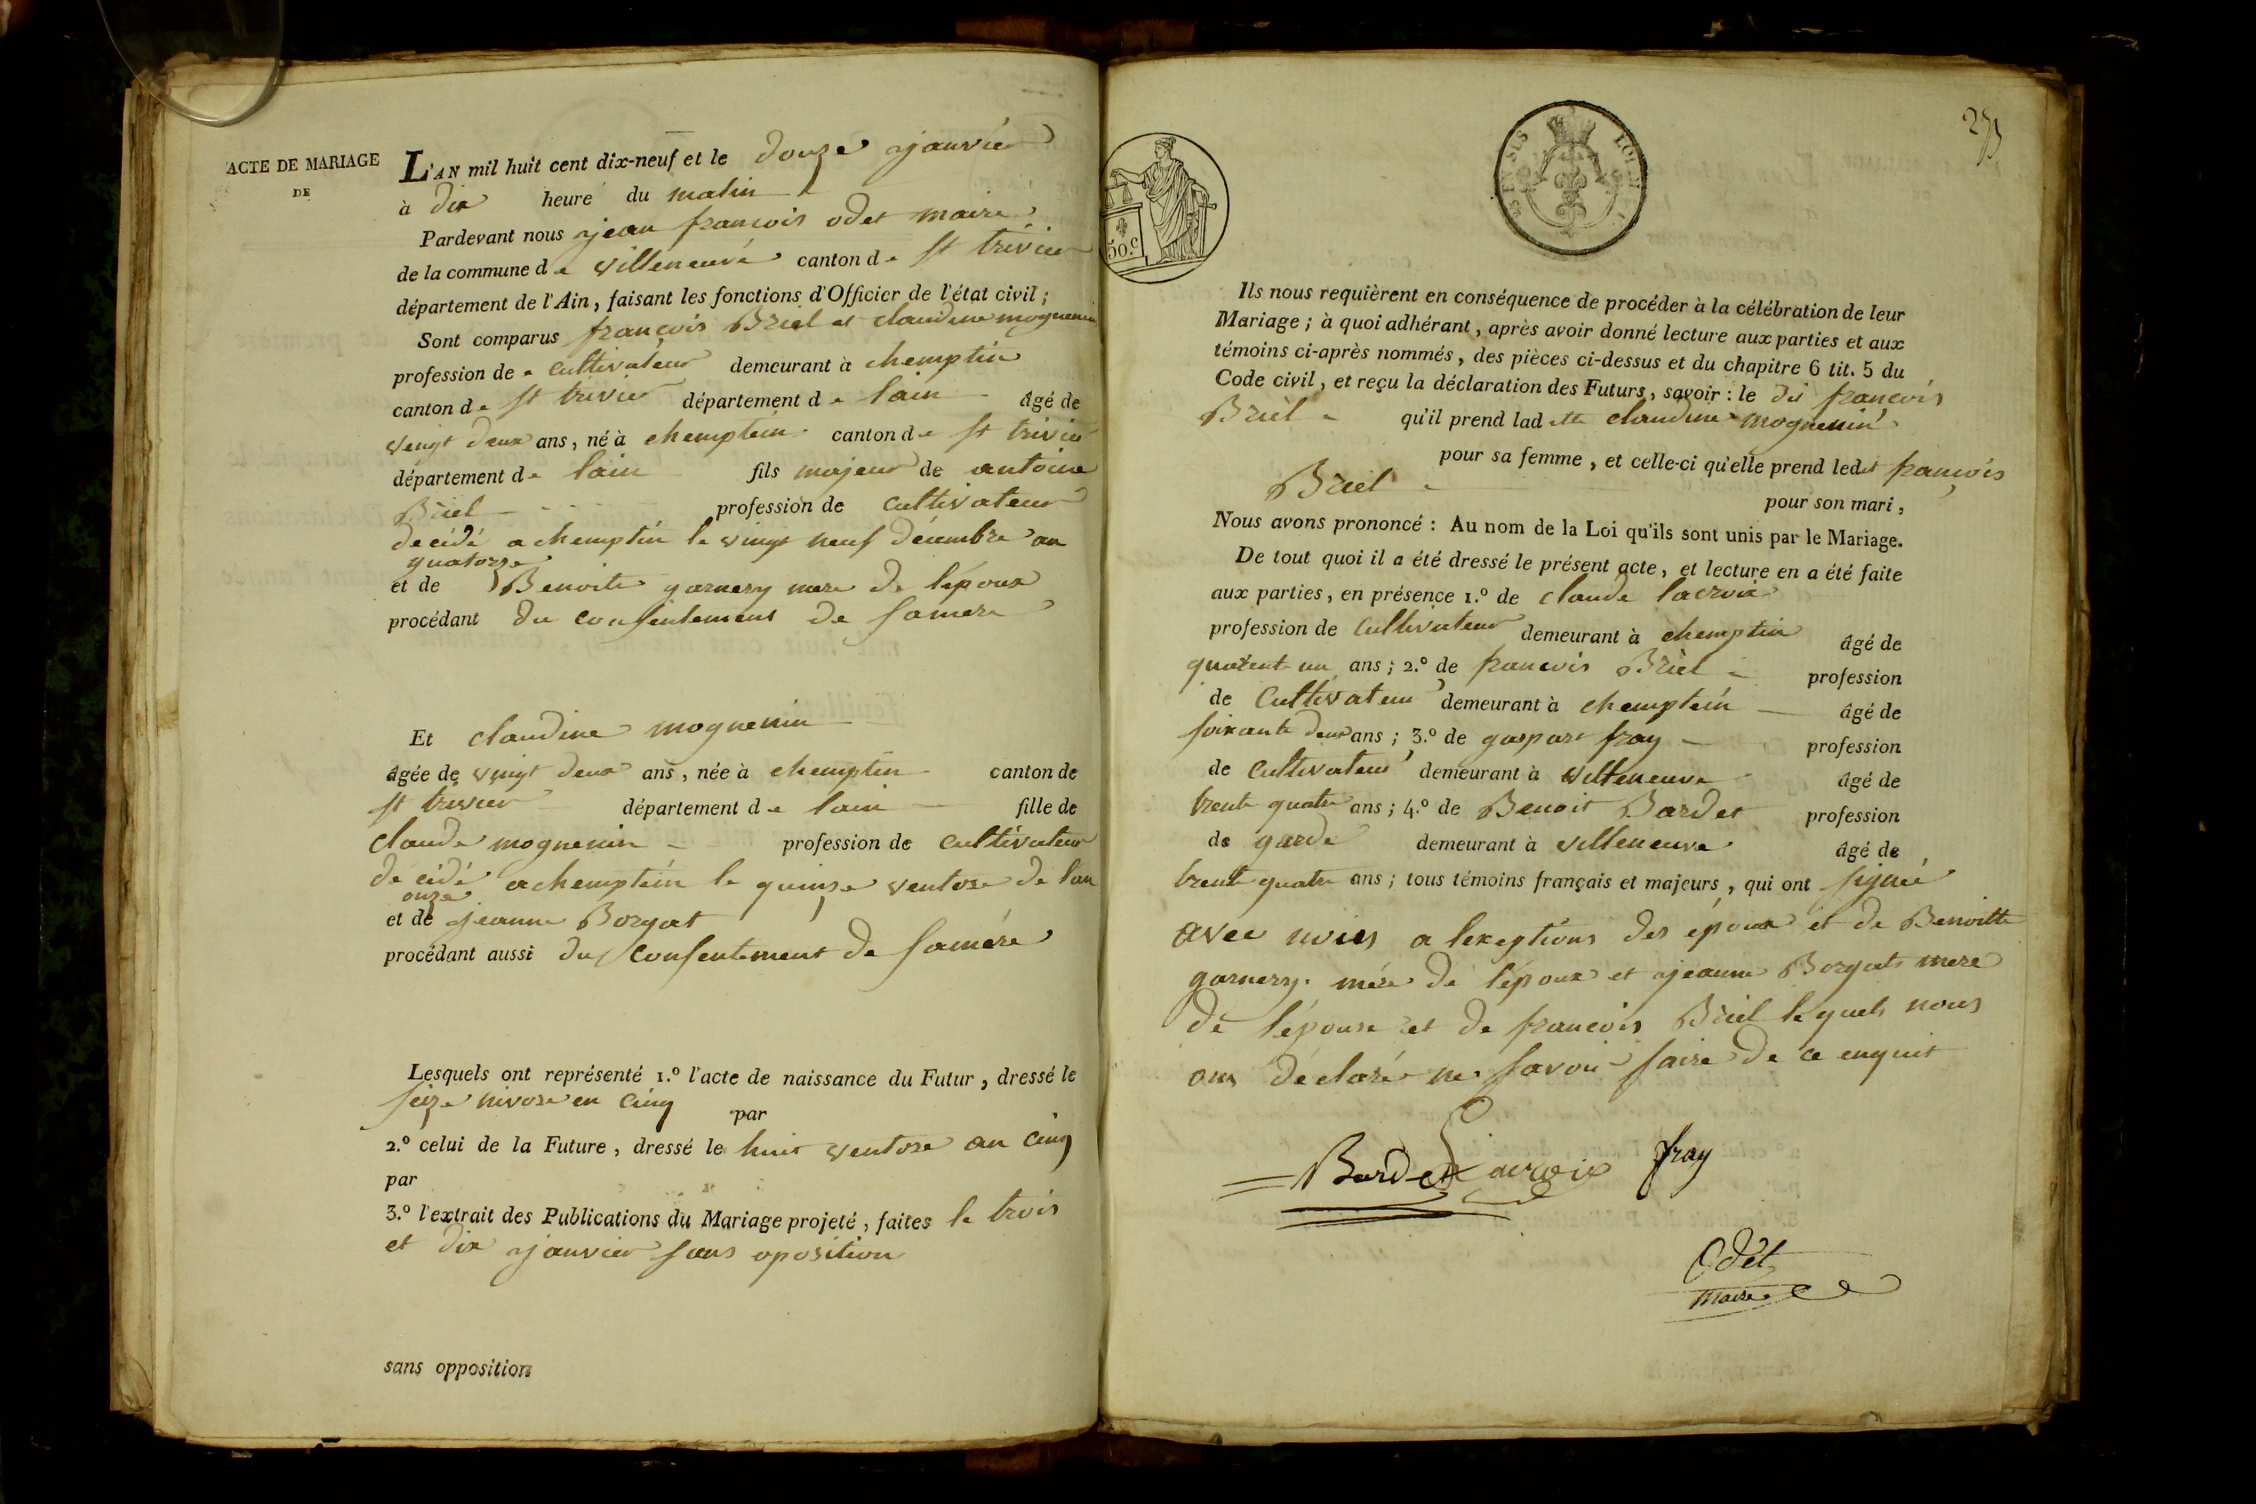 ACTE DE MARIAGE
DE
L'AN mil huit cent dix-neuf et le douze janvier
à dix heure du matin
Pardevant nous jean françois odet maire
de la commune de villeneuve canton de st trivier
département de l'Ain, faisant les fonctions d'Officier de l'état civil;
Sont comparus françois Briel et claudine mognenin
profession de cultivateur demeurant à chemptin
canton de st trivier département de lain âgé de
vingt deux ans, né à chemptein canton de st trivier
département de lain fils majeur de antoine
Briel profession de cultivateur
décidé a chemptin le vingt neuf décembre an
quatorze
et de Benoite garnery mere de lépoux
procédant du consentement de samere
Et claudine mognenin
âgée de vingt deux ans, née à chemptin canton de
st trivier département de lain fille de
claude mognenin profession de cultivateur
décidé a chemptein le quinze ventose de lan
onze
et de jeanne Borgat
procédant aussi du consentement de samére
Lesquels ont représenté 1.º l'acte de naissance du Futur, dressé le
seize nivose en cinq par
2.º celui de la Future, dressé le huit ventose an cinq
par
3.º l'extrait des Publications du Mariage projeté, faites le trois
et dix janvier sans oposition
sans opposition
273
50.c
Ils nous requièrent en conséquence de procéder à la célébration de leur
Mariage; à quoi adhérant, après avoir donné lecture aux parties et aux
témoins ci-après nommés, des pièces ci-dessus et du chapitre 6 tit. 5 du
Code civil, et reçu la déclaration des Futurs, savoir: le dit françois
Briel qu'il prend ladette claudine mognenin
pour sa femme, et celle-ci qu'elle prend ledit françois
Briel
pour son mari,
Nous avons prononcé: Au nom de la Loi qu'ils sont unis par le Mariage.
De tout quoi il a été dressé le présent acte, et lecture en a été faite
aux parties, en présence 1.º de claude lacroix
profession de cultivateur demeurant à chemptin âgé de
quarent un ans; 2.º de francois Briel profession
de cultivateur demeurant à chemptein âgé de
soixante deux ans; 3.º de gaspart fray profession
de cultivateur demeurant à villeneuve âgé de
trente quatre ans; 4.º de Benoit Bardet profession
de garde demeurant à villeneuve âgé de
trente quatre ans; tous témoins français et majeurs, qui ont signé
avec nous a lexeptions des époux et de Benoitte
garnery. mére de lépoux et jeanne Borgat mere
de lépouse et de francois Briel lequels nous
ons déclaré ne savoir faire de ce enquit
Bardet Lacroix fray
Odet
Maire